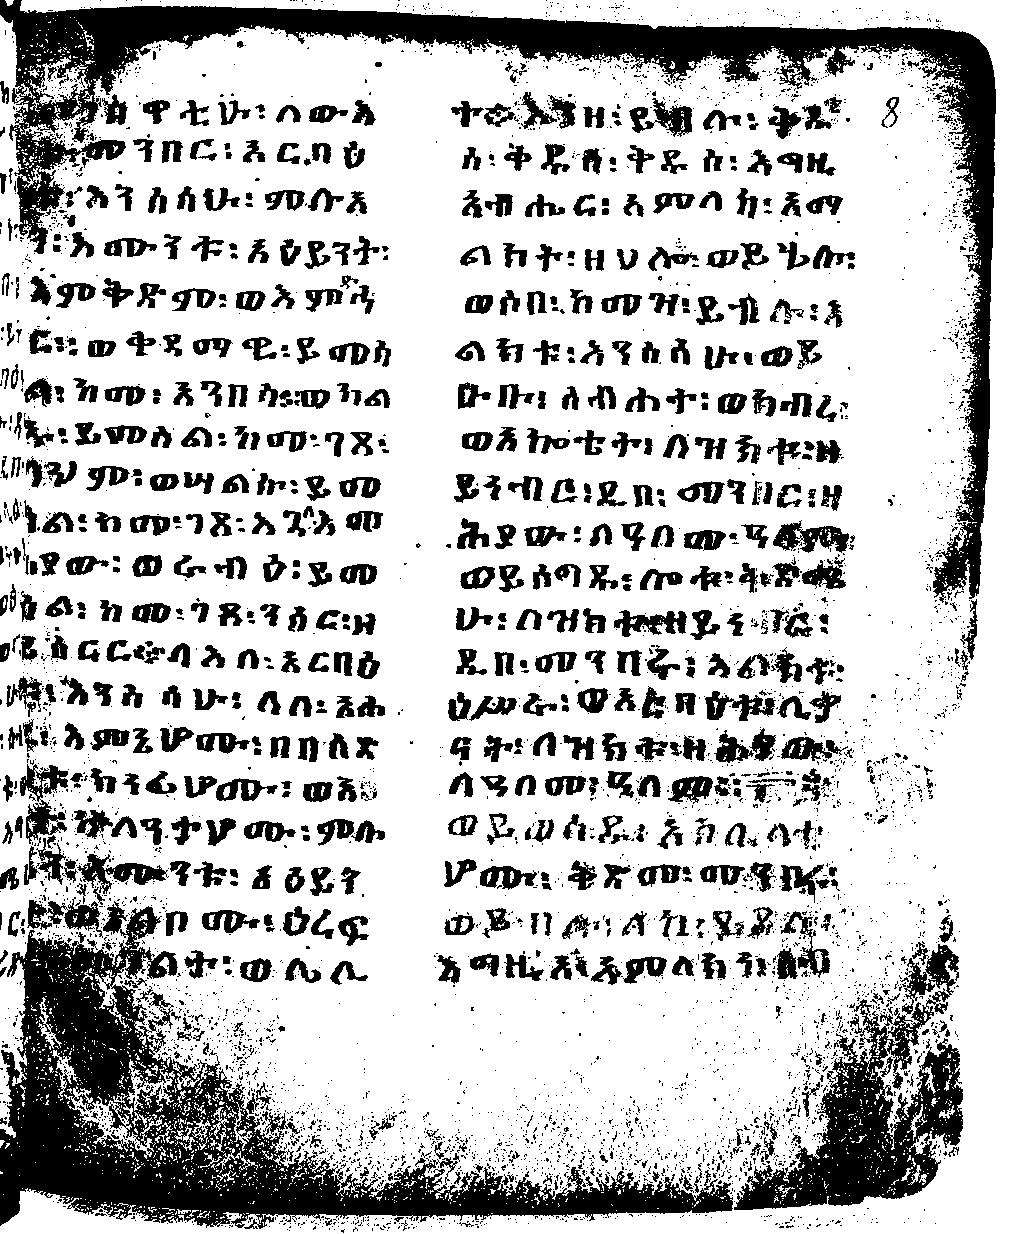 ዋቲሁ፡ ለውእ
መንበር፡ አርባዕ
እንስሳሁ፡ መሉአ
እሙንቱ፡ አዕይንት፡
እምቅድም፡ ወእምድኅ
ር፡፡ ወቀዳማዊ፡ ይመስ
ል፡ ከመ፡ አንበሳ፡፡ ወካል
ኡ፡ ይመስል፡ ከመ፡ ገጸ፡
ላህም፡ ወሣልሱ፡ ይመ
ስል፡ ከመ፡ ገጸ፡ እጓለ እመ
ሕያው፡ ወራብዕ፡ ይመ
ስል፡ ከመ፡ ገጸ፡ ንስር፡ ዘ
ይሰርር፡ ለእሉ፡ አርባዕ
እንስሳሁ፡ ለለ፡ አሐ
እምኔሆሙ፡ በበስድ
ቱ፡ ክንፊሆሙ፡ ወእ
ንተለንታሆሙ፡ ምሉ
እሙንቱ፡ አዕይን
አልቦሙ፡ ዕረፍ
ልት፡ ወሌሊ
ተ፡ እንዘ፡ ይብሉ፡ ቅዱ
ስ፡ ቅዱስ፡ ቅዱስ፡ እግዚ
አብሔር፡ አምላክ፡ አማ
ልክት፡ ዘሀሎ፡ ወይሄሉ፡
ወሶበ፡ ከመዝ፡ ይብሉ፡ እ
ልክቱ፡ እንስሳሁ፡ ወይ
ሁቡ፡ ስብሐተ፡ ወክብረ፡
ወአኰቴተ፡ ለዝክቱ፡ ዘ
ይነብር፡ ዲበ፡ መንበር፡ ዘ
ሕያው፡ ለዓለመ፡ ዓለም፡
ወይሰግዱ፡ ሎቱ፡ ቅድሜ
ሁ፡ ለዝክቱ፡ ዘይነብር፡
ዲበ፡ መንበሩ፡ እልክቱ፡
ዕሥራ፡ ወአርባዕቱ፡ ሊቃ
ናት፡ ለዝክቱ፡ ዘሕያው፡
ለዓለመ፡ ዓለም፡
ወይወስዱ፡ አክሊላቲ
ሆሙ፡ ቅድመ፡ መንበሩ፡
ወይብሉ፡ ለከ፡ ይደሉ፡
እግዚኦ፡ አምላክነ፡ ስብ
8